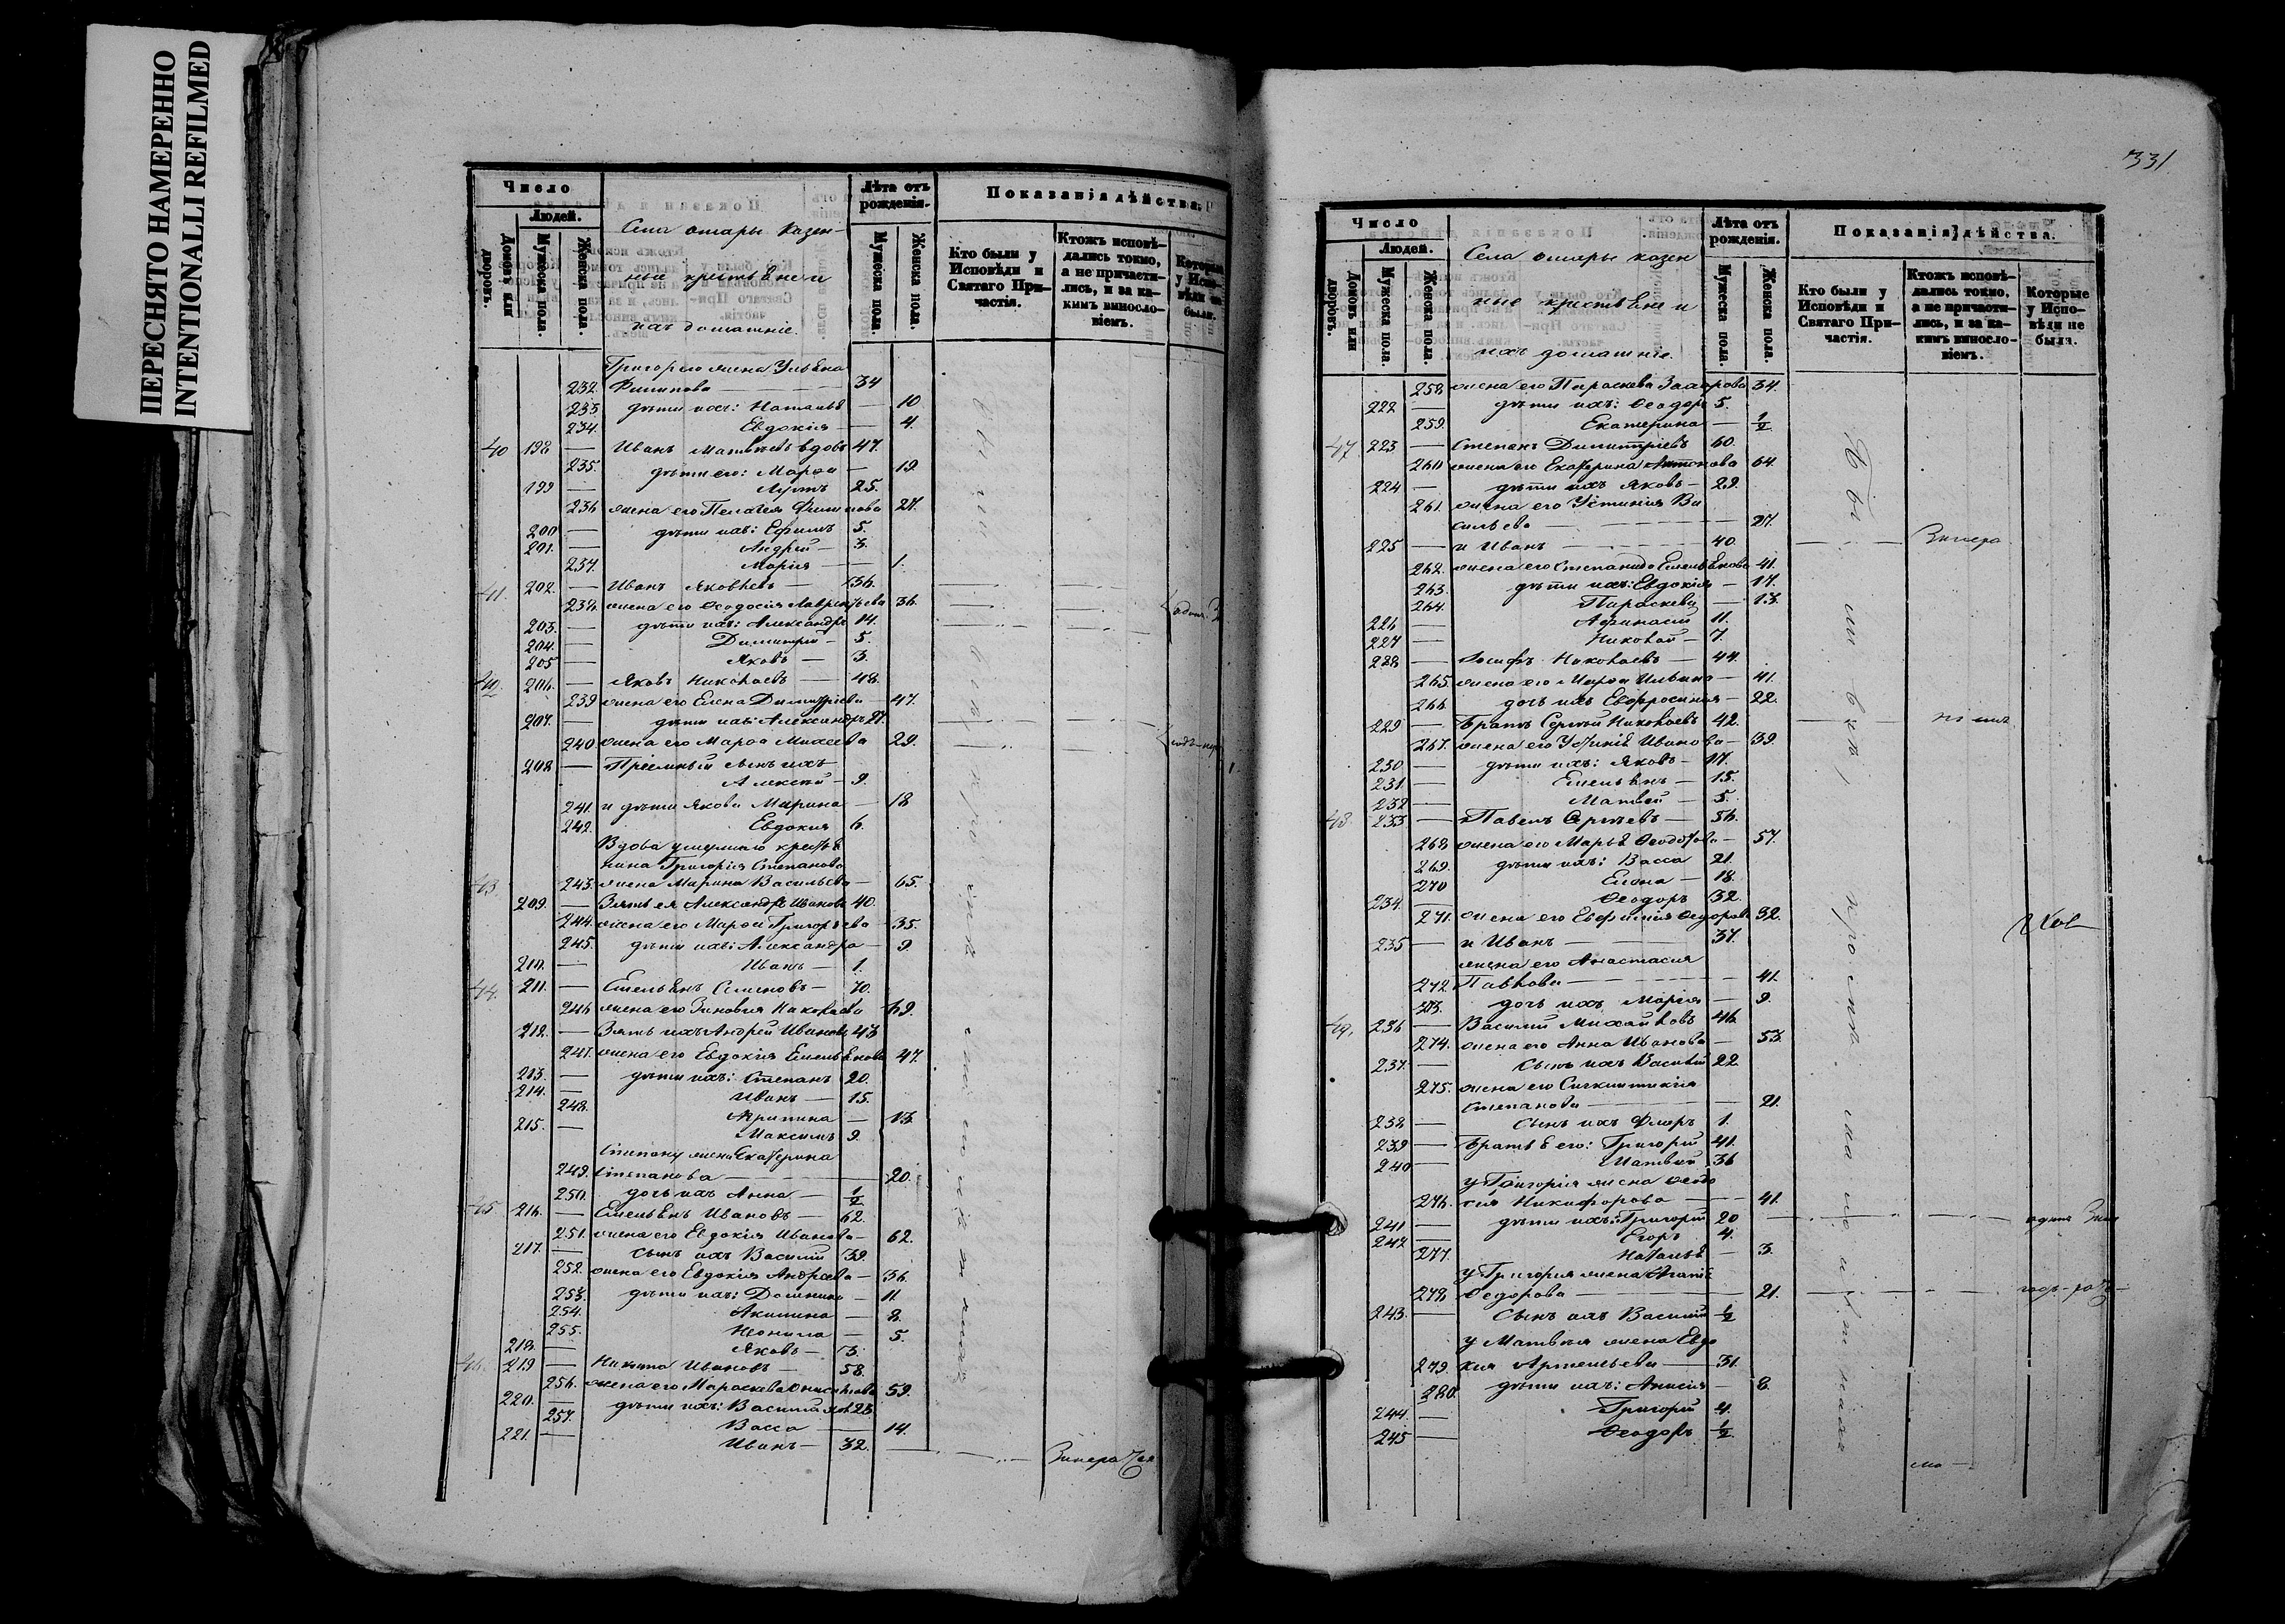 ПЕРЕСНЯТО НАМЕРЕННО
INTENTIONALLI REFILMED
Число
Людей.
Домовъ или дворовъ.
Мужеска пола.
Женска пола.
Села отары казен-
ные крестьяне и
ихъ домашніе.
Лѣта отъ рожденія.
Мужеска пола.
Женска пола.
Показанія дѣйства.
Кто были у Исповѣди и Святаго При-частія.
Ктожъ исповѣ-дались токмо, а не причасти-лись, и за ка-кимъ винословіемъ.
Которые у Испо-вѣди не были.
Григорія жена Ульяна
232. Филипова — 34
233. дѣти ихъ: Наталья — 10
234. Евдокія — 4.
40 198 — Иванъ Матвѣевъ вдовъ 47.
235. дѣти его: Марѳа — 19.
199 — 25.
236 жена его Пелагея Филипова 27.
200 — дѣти ихъ: Ефимъ 5.
201. — Андрей — 3.
237. Марія — 1.
41. 202. — Иванъ Яковлевъ — 36.
238. жена его Ѳеодосія Лаврентьева 36.
203. — дѣти ихъ: Александръ 14.
204. — Димитрій — 5.
205 — Яковъ — 3.
42. 206. — Яковъ Николаевъ — 48.
239 жена его Елена Димитріева 47.
207. — дѣти ихъ: Александръ 27.
240 жена его Марѳа Михеева 29.
208 — Пріемный сынъ ихъ
Алексѣй — 9.
241. и дѣти Якова Марина — 18
242. Евдокия 6.
Вдова умершаго крестья
нина Григорія Степанова
43 243. жена Марина Васильева — 65.
209. — Зять ея Александръ Ивановъ 40.
244. жена его Марѳа Григорьева — 35.
245. дѣти ихъ: Александра — 9.
210. — Иванъ — 1.
44. 211. — Емельянъ Семеновъ — 70.
246 жена его Зиновія Николаева 69.
212. — Зять ихъ Андрей Ивановъ 43
247. жена его Евдокія Емельянова 47.
213. — дѣти ихъ: Степанъ 20.
214. — Иванъ — 15.
248. Агрипина — 13.
215. — Максимъ 9.
Степану жена Екатерина
249. Степанова — 20.
250. дочь ихъ Анна — 1/2
45 216. — Емельянъ Ивановъ — 62.
251. жена его Евдокія Иванова — 62.
217. — сынъ ихъ Василій 39.
252. жена его Евдокія Андреева — 36.
253. дѣти ихъ: Домника — 11.
254. Акилина — 8.
255. Неонила — 5.
218. — Яковъ — 3.
46. 219 — Никита Ивановъ — 58.
256. жена его Параскева Онисимова 59.
220. — дѣти ихъ: Василій 23
257. Васса — 14.
221. — Иванъ — 32.
331
Число
Людей.
Домовъ или дворовъ.
Мужеска пола.
Женска пола.
Села отары казен
ные крестьяне и
ихъ домашніе.
Лѣта отъ рожденія.
Мужеска пола.
Женска пола.
Показанія дѣйства.
Кто были у Исповѣди и Святаго При-частія.
Ктожъ исповѣ-дались токмо, а не причасти-лись, и за ка-кимъ винословіемъ.
Которые у Испо-вѣди не были.
258. жена его Параскева Захарова 34.
222 — дѣти ихъ: Ѳеодоръ 5.
259. Екатерина — 1/2
47 223 — Степанъ Димитріевъ 60.
260 жена его Екатерина Антонова 64.
224 — дѣти ихъ Яковъ — 29.
261. жена его Устинія Ва
сильева — 27.
225 — и Иванъ — 40.
262. жена его Степанида Емельянова 41.
263. дѣти ихъ: Евдокія — 17.
264. Параскева — 13.
226 — Афанасій 11.
227 — Николай — 7.
228 — Іосифъ Николаевъ — 44.
265. жена его Марѳа Ильина — 41.
266. дочь ихъ Евфросинія — 22.
229 — Братъ Сергѣй Николаевъ 42.
267. жена его Устинія Иванова — 39.
230 — дѣти ихъ: Яковъ — 17.
231. — Емельянъ — 15.
232 — Матвей — 5.
48. 233 — Павелъ Сергѣевъ — 56.
268 жена его Марья Ѳеодотова — 57.
269. дѣти ихъ: Васса 21.
270 Елена — 18.
234. — Ѳеодоръ 32.
271. жена его Евфимія Ѳедорова 32.
235 — и Иванъ — 37.
жена его Анастасия
272 Павлова — 41.
273. дочь ихъ Марія — 9.
49. 236 — Василій Михайловъ 46.
274. жена его Анна Иванова — 53.
237. — сынъ ихъ Василій 22.
275. жена его
Степанова — 21.
238 — сынъ ихъ Флоръ 1.
239 — Братья его: Григорій 41.
240 — Матвей 36
у Григорія жена Ѳеодо
276. сія Никифорова — 41.
241 — дѣти ихъ: Григорій 20
242 — Егоръ 4.
277. Наталья — 3.
у Григорія жена Агапія
278. Ѳедорова — 21.
243. — Сынъ ихъ Василій 1/2
у Матвѣя жена Евдо
279. кия Артемьева — 31.
280. дѣти ихъ: Анисія — 8.
244. — Григорій 4.
245 — Ѳеодоръ 1/2